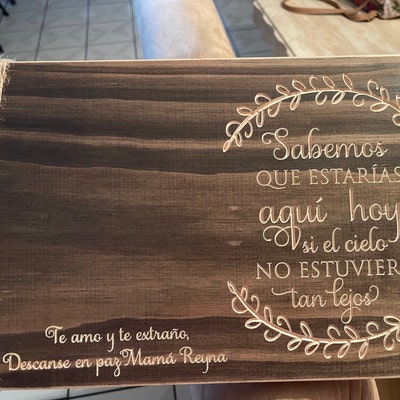 Sabemos
QUE ESTARÍAS
aquí hoy
si el cielo
NO ESTUVIER
tan lejos
Te amo y te extraño,
Descanse en paz Mamá Reyna